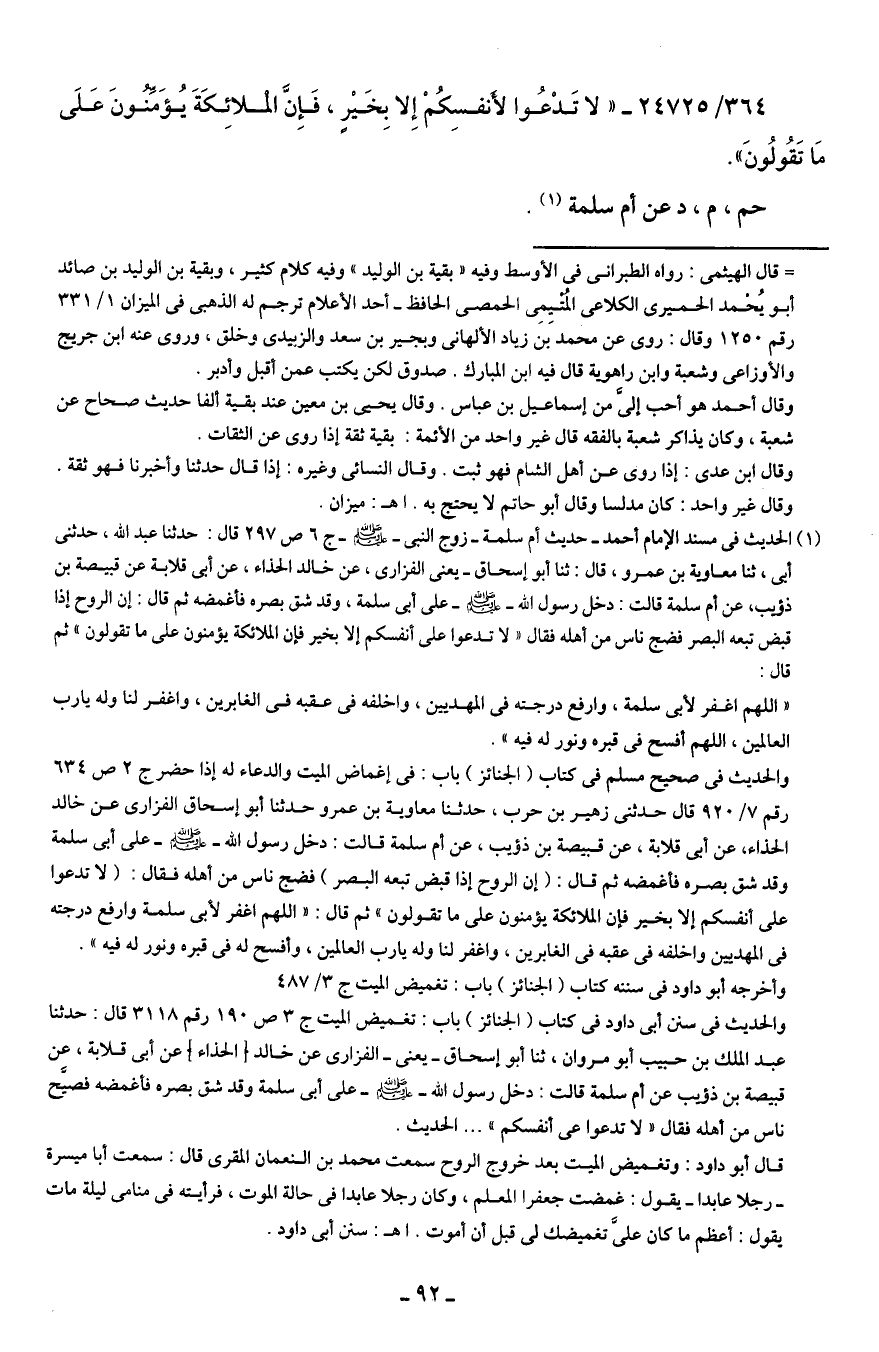 ٣٦٤/ ٢٤٧٢٥ ـ « لا تَدْعُوا لأَنفسِكُمْ إِلا بِخَيْرٍ ، فَإِنَّ الْملائِكَةَ يُؤَمِّنُونَ عَلَى
مَا تَقُولُونَ».
حم ، م ، د عن أم سلمة (١) .
= قال الهيثمى : رواه الطبرانى فى الأوسط وفيه « بقية بن الوليد » وفيه كلام كثير ، وبقية بن الوليد بن صائد
أبو يُحْمد الحميرى الكلاعى الْمُتْيِمِى الحمصى الحافظ ـ أحد الأعلام ترجم له الذهبى فى الميزان ١/ ٣٣١
رقم ١٢٥٠ وقال : روى عن محمد بن زياد الألهانى وبجير بن سعد والزبيدى وخلق ، وروى عنه ابن جريج
والأوزاعى وشعبة وابن راهوية قال فيه ابن المبارك . صدوق لكن يكتب عمن أقبل وأدبر .
وقال أحمد هو أحب إلىَّ من إسماعيل بن عباس . وقال يحيى بن معين عند بقية ألفا حديث صحاح عن
شعبة ، وكان يذاكر شعبة بالفقه قال غير واحد من الأئمة : بقية ثقة إذا روى عن الثقات .
وقال ابن عدى : إذا روى عن أهل الشام فهو ثبت . وقال النسائى وغيره : إذا قال حدثنا وأخبرنا فهو ثقة .
وقال غير واحد : كان مدلسا وقال أبو حاتم لا يحتج به . ا هـ : ميزان .
(١) الحديث فى مسند الإمام أحمد ـ حديث أم سلمة ـ زوج النبى ـ ﷺ ـ ج ٦ ص ٢٩٧ قال : حدثنا عبد الله ، حدثنى
أبى ، ثنا معاوية بن عمرو ، قال : ثنا أبو إسحاق ـ يعنى الفزارى ، عن خالد الحذاء ، عن أبى قلابة عن قبيصة بن
ذؤيب، عن أم سلمة قالت : دخل رسول الله ـ ﷺ ـ على أبى سلمة ، وقد شق بصره فأغمضه ثم قال : إن الروح إذا
قبض تبعه البصر فضج ناس من أهله فقال « لا تدعوا على أنفسكم إلا بخير فإن الملائكة يؤمنون على ما تقولون » ثم
قال :
« اللهم اغفر لأبى سلمة ، وارفع درجته فى المهديين ، واخلفه فى عقبه فى الغابرين ، واغفر لنا وله يارب
العالمين ، اللهم أفسح فى قبره ونور له فيه » .
والحديث فى صحيح مسلم فى كتاب ( الجنائز ) باب : فى إغماض الميت والدعاء له إذا حضر ج ٢ ص ٦٣٤
رقم ٧/ ٩٢٠ قال حدثنى زهير بن حرب ، حدثنا معاوية بن عمرو حدثنا أبو إسحاق الفزارى عن خالد
الحذاء، عن أبى قلابة ، عن قبيصة بن ذؤيب ، عن أم سلمة قالت : دخل رسول الله ـ ﷺ ـ على أبى سلمة
وقد شق بصره فأغمضه ثم قال : ( إن الروح إذا قبض تبعه البصر ) فضج ناس من أهله فقال : ( لا تدعوا
على أنفسكم إلا بخير فإن الملائكة يؤمنون على ما تقولون » ثم قال : « اللهم اغفر لأبى سلمة وارفع درجته
فى المهديين واخلفه فى عقبه فى الغابرين ، واغفر لنا وله يارب العالمين ، وأفسح له فى قبره ونور له فيه » .
وأخرجه أبو داود فى سننه كتاب ( الجنائز ) باب : تغميض الميت ج ٣/ ٤٨٧
والحديث فى سنن أبى داود فى كتاب ( الجنائز ) باب : تغميض الميت ج ٣ ص ١٩٠ رقم ٣١١٨ قال : حدثنا
عبد الملك بن حبيب أبو مروان ، ثنا أبو إسحاق ـ يعنى ـ الفزارى عن خالد { الحذاء } عن أبى قلابة ، عن
قبيصة بن ذؤيب عن أم سلمة قالت : دخل رسول الله ـ ﷺ ـ على أبى سلمة وقد شق بصره فأغمضه فصيَّح
ناس من أهله فقال « لا تدعوا عى أنفسكم » ... الحديث .
قال أبو داود : وتغميض الميت بعد خروج الروح سمعت محمد بن النعمان المقرى قال : سمعت أبا ميسرة
ـ رجلا عابدا ـ يقول : غمضت جعفرا المعلم ، وكان رجلا عابدا فى حالة الموت ، فرأيته فى منامى ليلة مات
يقول : أعظم ما كان علىَّ تغميضك لى قبل أن أموت . ا هـ : سنن أبى داود .
ـ ٩٢ ـ